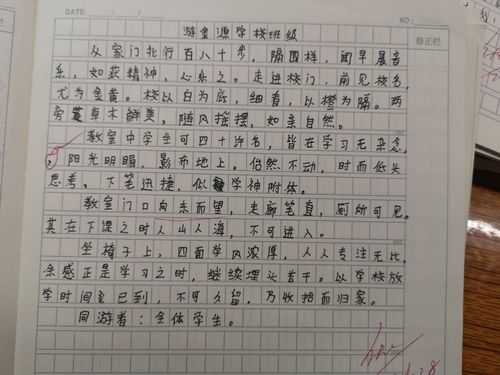 DATE
NO
游金源学校班级
修正栏
从家门北行百八十步，隔围样，闻早晨音
乐，如获精神，心乐之。走进校门，前见校名，
尤为金黄。校以白为底，细看，以橙为隔。两
旁草木鲜美，随风摇摆，如亲自然。
教室中学生可四十许名，皆在学习无杂念，
阳光明媚，影布地上。佁然不动，时而低头
思考。下笔迅捷，似学神附体。
教室门口向东而望，走廊笔直，厕所可见。
其在下课之时人山人海，不可进入。
坐椅子上，四面学风浓厚，人人专注无比，
余感正是学习之时，继续埋头苦干。以学校放
学时间已到，不可久留，乃收拾而归家。
同游者：全体学生。